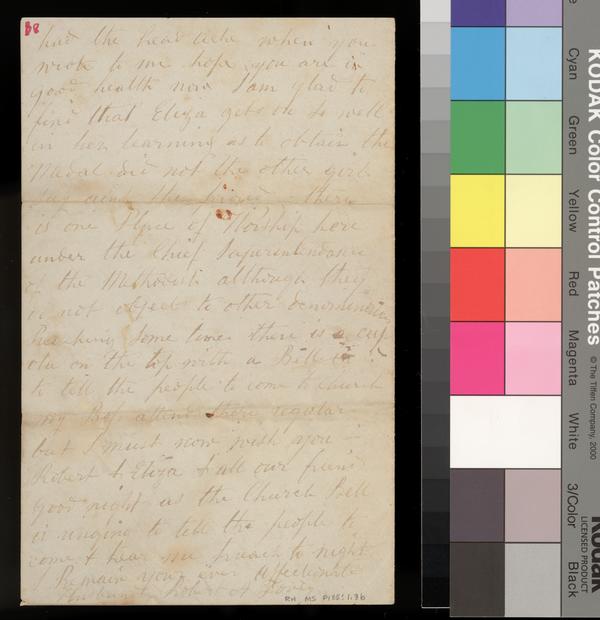 88
had the head ache when you
wrote to me hope you are in
good health now I am glad to
find that Eliza gets on so well
in her learning as to obtain the
Medal did not the other girls
there
is one Place of Worship here
under the Chief Superintendance
of the Methodists although they
do not object to other denominations
Preaching some times there is a cup
olo on the top with a Bell in
to tell the people to come to church
my Boys attend there regular
but I must now wish you
Robert & Eliza & all our friends
good night as the Church Bell
is ringing to tell the people to
come & hear me preach to night
Remain your ever Affectionate
Husband Robert A
RH MS P188:1.36
KODAK Color Control Patches
© The Tiffen Company, 2000
Kodak
LICENSED PRODUCT
Cyan
Green
Yellow
Red
Magenta
White
3/Color
Black